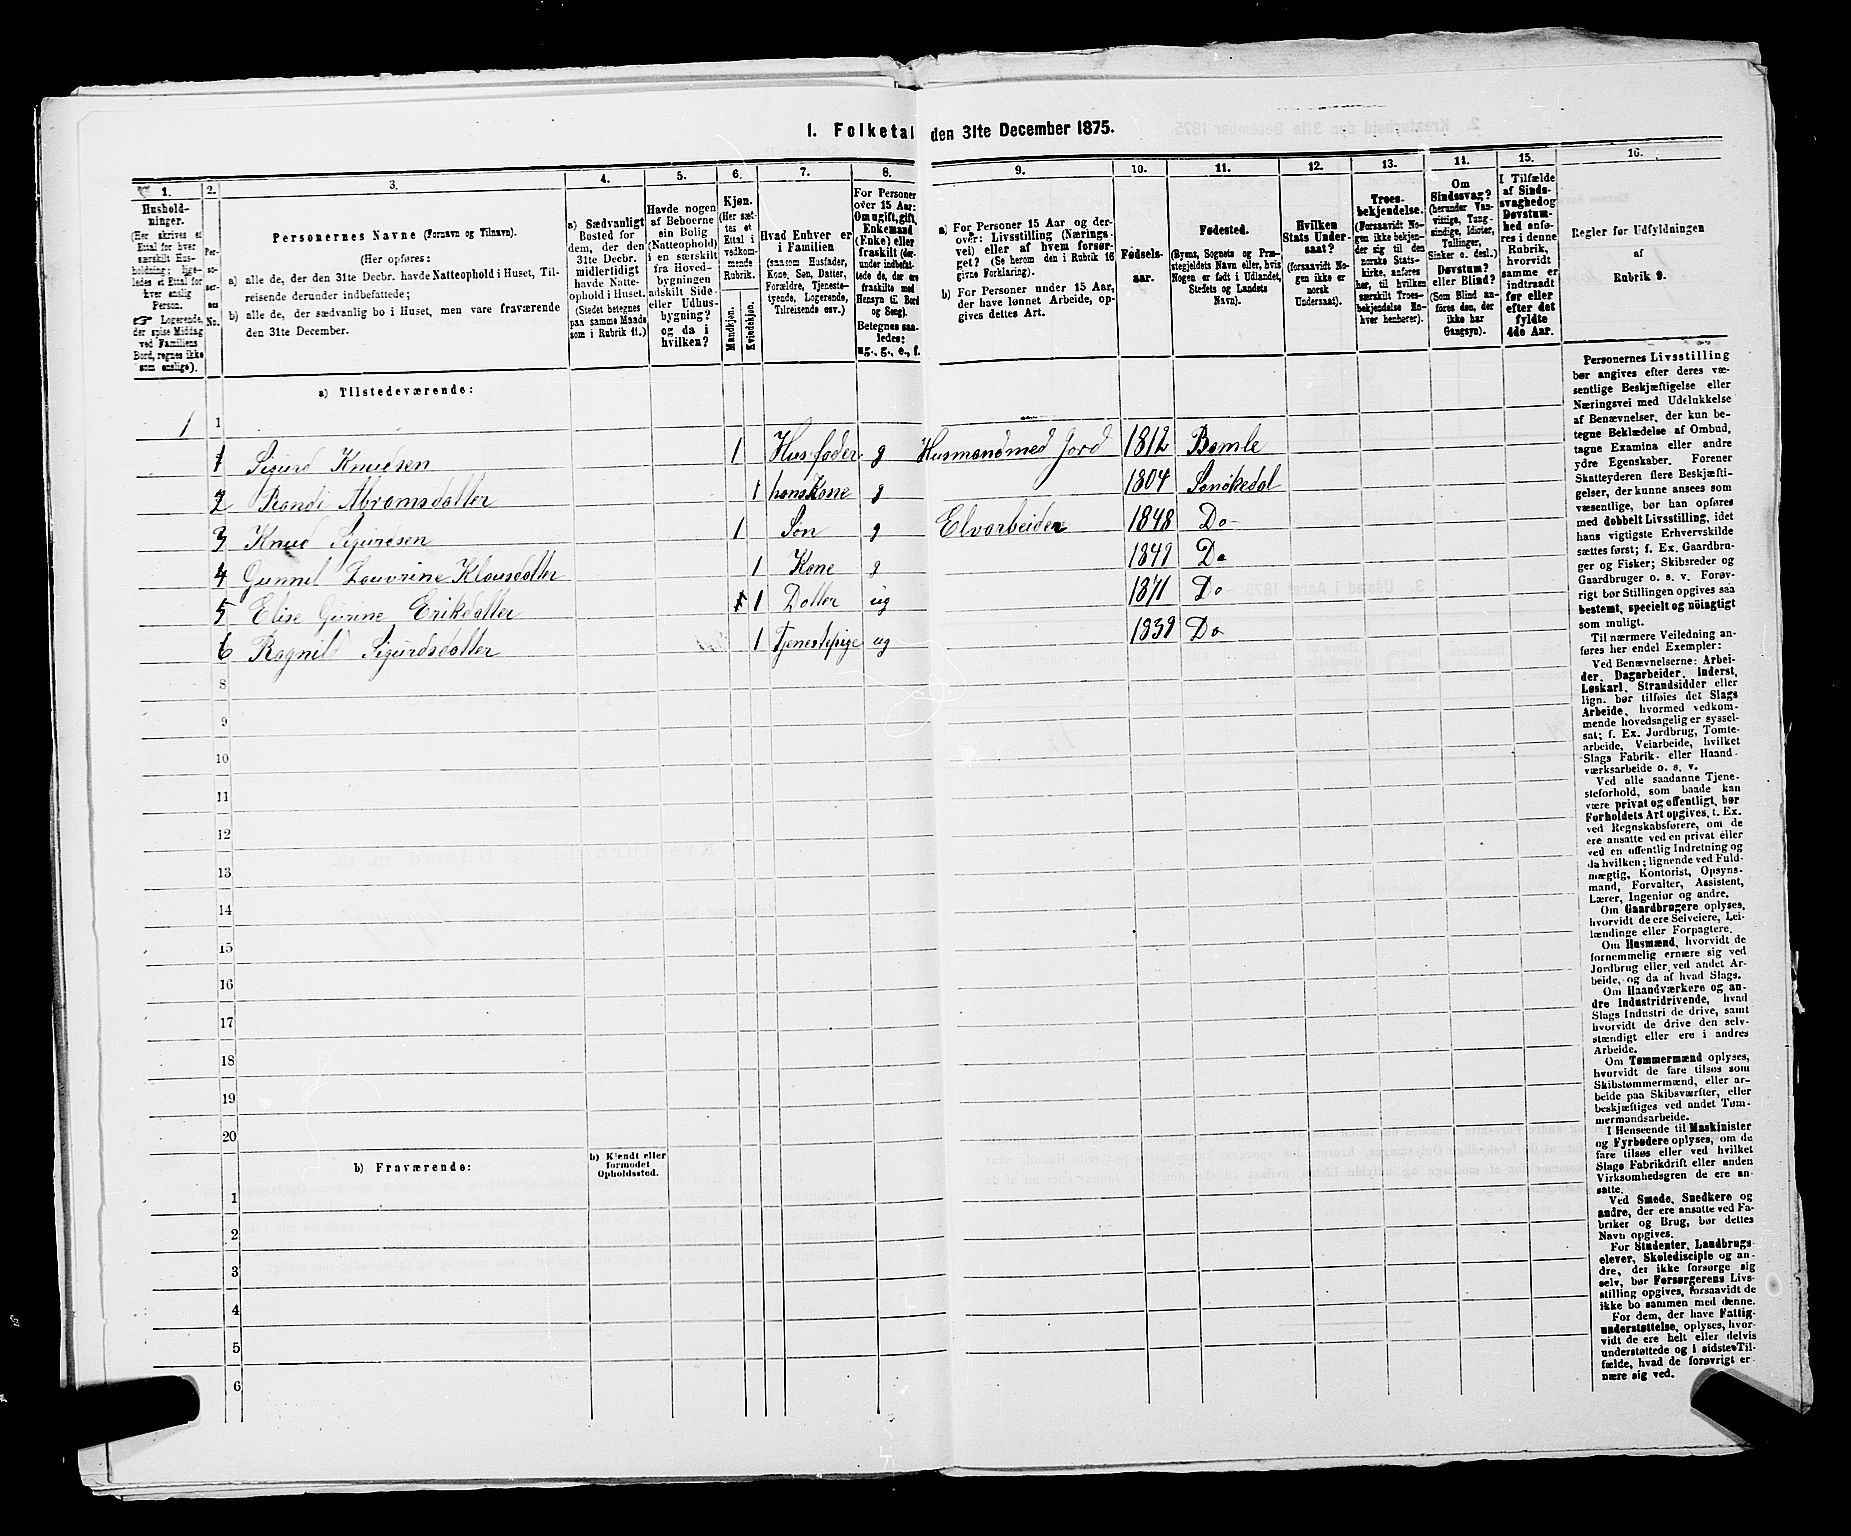 1. Folketal den 31te December 1875.
1. 2. 3. 4. 5. 6. 7. 8. 9. 10. 11. 12. 13. 14. 15. 16.
Hushold-
ninger.
(Her skrives et
Ettal for hver
særskilt Hus-
holdning; lige-
ledes et Ettal for
hver enslig
Person.
☞ Logerende,
der spise Middag
ved Familiens
Bord, regnes ikke
som enslige).
Per-
so-
ner-
nes
No.
Personernes Navne (Fornavn og Tilnavn).
(Her opføres:
a) alle de, der den 31te Decbr. havde Natteophold i Huset, Til-
reisende derunder indbefattede;
b) alle de, der sædvanlig bo i Huset, men vare fraværende
den 31te December.
a) Sædvanligt
Bosted for
dem, der den
31te Decbr.
midlertidigt
havde Natte-
ophold i Huset.
(Stedet betegnes
paa samme Maade
som i Rubrik 11.)
Havde nogen
af Beboerne
sin Bolig
(Natteophold)
i en særskilt
fra Hoved-
bygningen
adskilt Side-
eller Udhus-
bygning?
og da i
hvilken?
Kjøn.
(Her sæt-
tes et
Ettal i
vedkom-
mende
Rubrik.
Mandkjøn.
Kvindekjøn.
Hvad Enhver er
i Familien
(saasom Husfader,
Kone, Søn, Datter,
Forældre, Tjeneste-
tyende, Logerende,
Tilreisende osv.)
For Personer
over 15 Aar:
Om ugift, gift,
Enkemand
(Enke) eller
fraskilt (der-
under indbefat-
tede de, der ere
fraskilte med
Hensyn til Bord
og Seng).
Betegnes saa-
ledes:
ug., g., e., f.
a) For Personer 15 Aar og der-
over: Livsstilling (Nærings-
vei) eller af hvem forsør-
get? (Se herom den i Rubrik 16
givne Forklaring).
b) For Personer under 15 Aar,
der have lønnet Arbeide, op-
gives dettes Art.
Fødsels-
aar.
Fødested.
(Byens, Sognets og Præ-
stegjeldets Navn eller, hvis
Nogen er født i Udlandet,
Stedets og Landets
Navn).
Hvilken
Stats Under-
saat?
(forsaavidt No-
gen ikke er
norsk
Undersaat).
Troes-
bekjendelse.
(Forsaavidt No-
gen ikke bekjen-
der sig til den
norske Stats-
kirke, anføres
her, til hvilken
særskilt Troes-
bekjendelse En-
hver henhører).
Om
Sindssvag?
(herunder Van-
vittige, Tung-
sindige, Idioter,
Tullinger,
Sinker o. desl.)
Døvstum?
eller Blind?
(Som Blind an-
føres den, der
ikke har
Gangsyn).
I Tilfælde
af Sinds-
svaghed og
Døvstum-
hed anfø-
res i denne
Rubrik,
hvorvidt
samme er
indtraadt
før eller
efter det
fyldte
4de Aar.
Regler for Udfyldningen
af
Rubrik 9.
a) Tilstedeværende:
1 1
1 Sigurd Knudsen 1 Husfader g Husmand med Jord 1812 Bamle
2 Randi Abramsdatter 1 hans Kone g 1804 Sanökedal
3 Knud Sigurdsen 1 Søn g Elvarbeider 1848 Do
4 Gunnil Louvrine Klausdatter 1 Kone g 1849 Do
5 Elise Gurine Erikdatter 1 Datter ug 1871 Do
6 Ragnild Sigurdsdatter 1 Tjenestepige ug 1838 Do
8
9
10
11
12
13
14
15
16
17
18
19
20
b) Fraværende:
b) Kjendt eller
formodet
Opholdssted.
1
2
3
4
5
6
Personernes Livsstilling
bør angives efter deres væ-
sentlige Beskjæftigelse eller
Næringsvei med Udelukkelse
af Benævnelser, der kun be-
tegne Beklædelse af Ombud,
tagne Examina eller andre
ydre Egenskaber. Forener
Skatteyderen flere Beskjæfti-
gelser, der kunne ansees som
væsentlige, bør han opføres
med dobbelt Livsstilling, idet
hans vigtigste Erhvervskilde
sættes først; f. Ex. Gaardbru-
ger og Fisker; Skibsreder og
Gaardbruger o. s. v. Forøv-
rigt bør Stillingen opgives saa
bestemt, specielt og nøiagtigt
som muligt.
Til nærmere Veiledning an-
føres her endel Exempler:
Ved Benævnelserne: Arbei-
der, Dagarbeider, Inderst,
Løskarl, Strandsidder eller
lign. bør tilføies det Slags
Arbeide, hvormed vedkom-
mende hovedsagelig er syssel-
sat; f. Ex. Jordbrug, Tomte-
arbeide, Veiarbeide, hvilket
Slags Fabrik- eller Haand-
værksarbeide o. s. v.
Ved alle saadanne Tjene-
steforhold, som baade kan
være privat og offentligt, bør
Forholdets Art opgives, t. Ex.
ved Regnskabsførere, om de
ere ansatte ved en privat eller
ved en offentlig Indretning og
da hvilken; lignende ved Fuld-
mægtig, Kontorist, Opsyns-
mand, Forvalter, Assistent,
Lærer, Ingeniør og andre.
Om Gaardbrugere oplyses,
hvorvidt de ere Selveiere, Lei-
lændinge eller Forpagtere.
Om Husmænd, hvorvidt de
fornemmelig ernære sig ved
Jordbrug eller ved andet Ar-
beide, og da af hvad Slags.
Om Haandværkere og an-
dre Industridrivende, hvad
Slags Industri de drive, samt
hvorvidt de drive den selv-
stændigt eller ere i andres
Arbeide.
Om Tømmermænd oplyses,
hvorvidt de fare tilsøs som
Skibstømmermænd, eller ar-
beide paa Skibsværfter, eller
beskjæftiges ved andet Tøm-
mermandsarbeide.
I Henseende til Maskinister
og Fyrbødere oplyses, om de
fare tilsøs eller ved hvilket
Slags Fabrikdrift eller anden
Virksomhedsgren de ere an-
satte.
Ved Smede, Snedkere og
andre, der ere ansatte ved Fa-
briker og Brug, bør dettes
Navn opgives.
For Studenter, Landbrugs-
elever, Skoledisciple og an-
dre, der ikke forsørge sig
selv, bør Forsørgerens Livs-
stilling opgives, forsaavidt de
ikke bo sammen med denne.
For dem, der have Fattig-
understøttelse, oplyses, hvor-
vidt de ere helt eller delvis
understøttede og i sidste Til-
fælde, hvad de forøvrigt er-
nære sig ved.